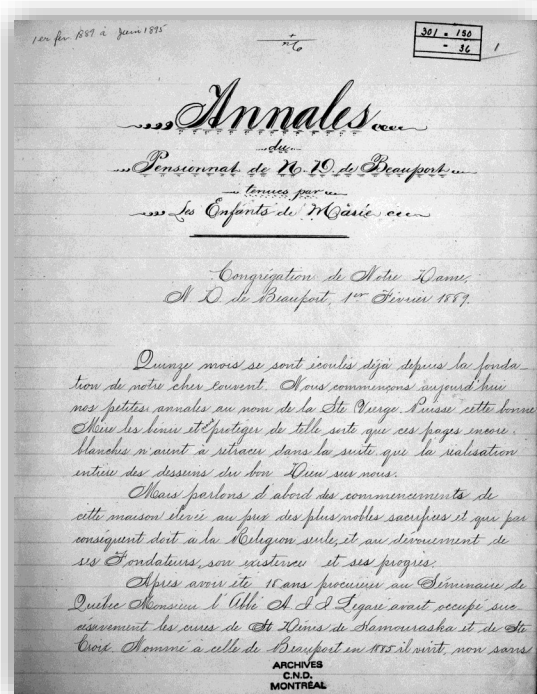 1er fév. 1889 à Juin 1895
301 = 190
- 36
1
Annales
du
Pensionnat de N. D. de Beauport
tenues par
Les Enfants de Marie
Congrégation de Notre Dame,
N. D. de Beauport, 1er Février 1889.
Quinze mois se sont écoulés déjà depuis la fonda-
tion de notre cher Couvent. Nous commençons aujourd'hui
nos petites annales au nom de la Ste Vierge. Puisse cette bonne
Mère les bénir et protéger de telle sorte que ces pages encore
blanches n'aient à retracer dans la suite que la réalisation
entière des desseins du bon Dieu sur nous.
Mais parlons d'abord des commencements de
cette maison élevée au prix des plus nobles sacrifices et qui par
conséquent doit à la Religion seule, et au dévouement de
ses Fondateurs, son existence et ses progrès.
Après avoir été 18 ans procureur au Séminaire de
Québec Monsieur l'Abbé A. J. J. Legaré avait occupé suc-
cessivement les cures de St Dénis de Kamouraska et de Ste
Croix. Nommé à celle de Beauport en 1885 il vint, non sans
ARCHIVES
C.N.D.
MONTRÉAL